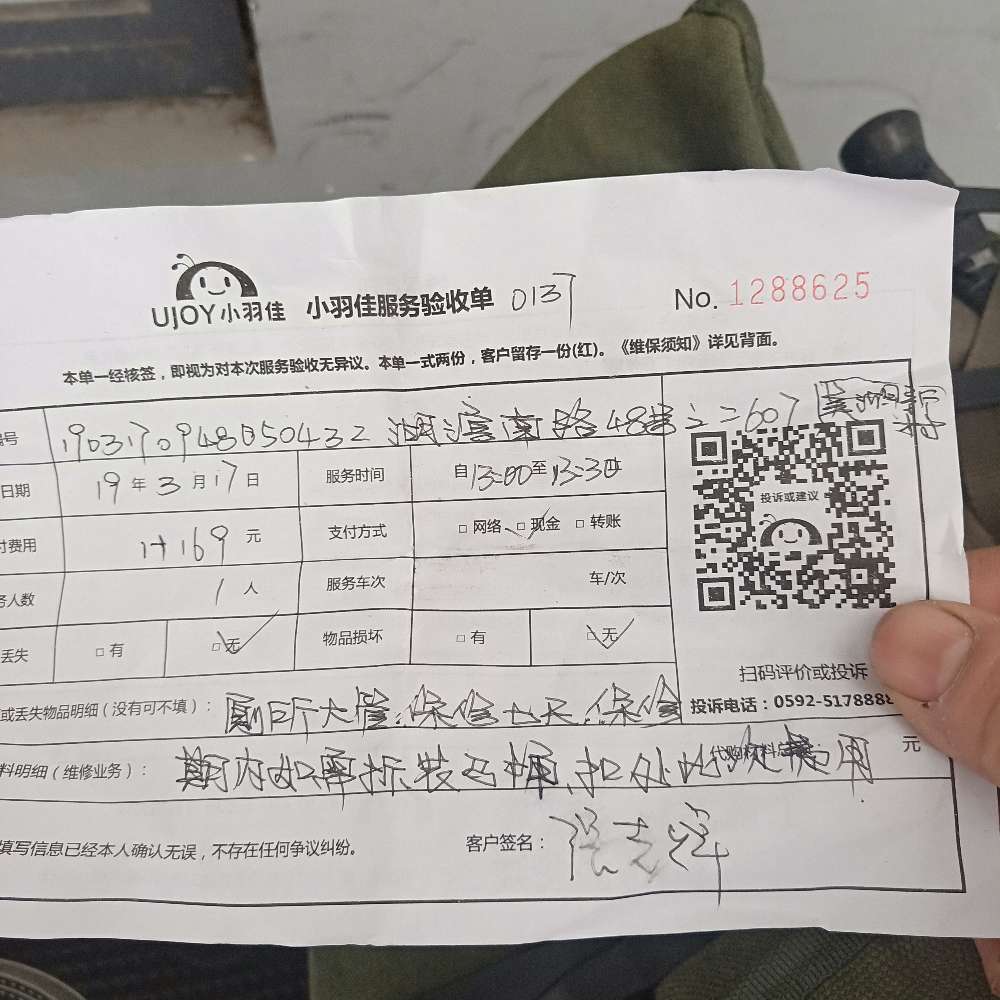 UJOY小羽佳 小羽佳服务验收单 0137 No. 1288625
本单一经核签，即视为对本次服务验收无异议。本单一式两份，客户留存一份(红)。《维保须知》详见背面。
号 湖滨南路48号之二607
日期 19年3月17日 服务时间 自13:00至13:30
费用 1+169 元 支付方式 □网络 □现金 □转账
人数 1 人 服务车次 车/次
丢失 □有 □无 物品损坏 □有 □无
投诉或建议
扫码评价或投诉
投诉电话：0592-5178888
或丢失物品明细（没有可不填）： 厕所大管.保修七天.保修
料明细（维修业务）： 期内如需拆装马桶.扣处此次费用
代购材料 元
填写信息已经本人确认无误，不存在任何争议纠纷。 客户签名：